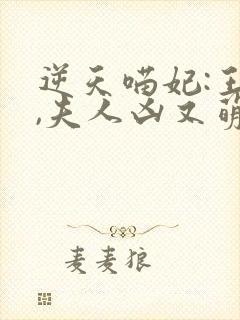 逆天喵妃:王
,夫人凶又萌
麦麦狼